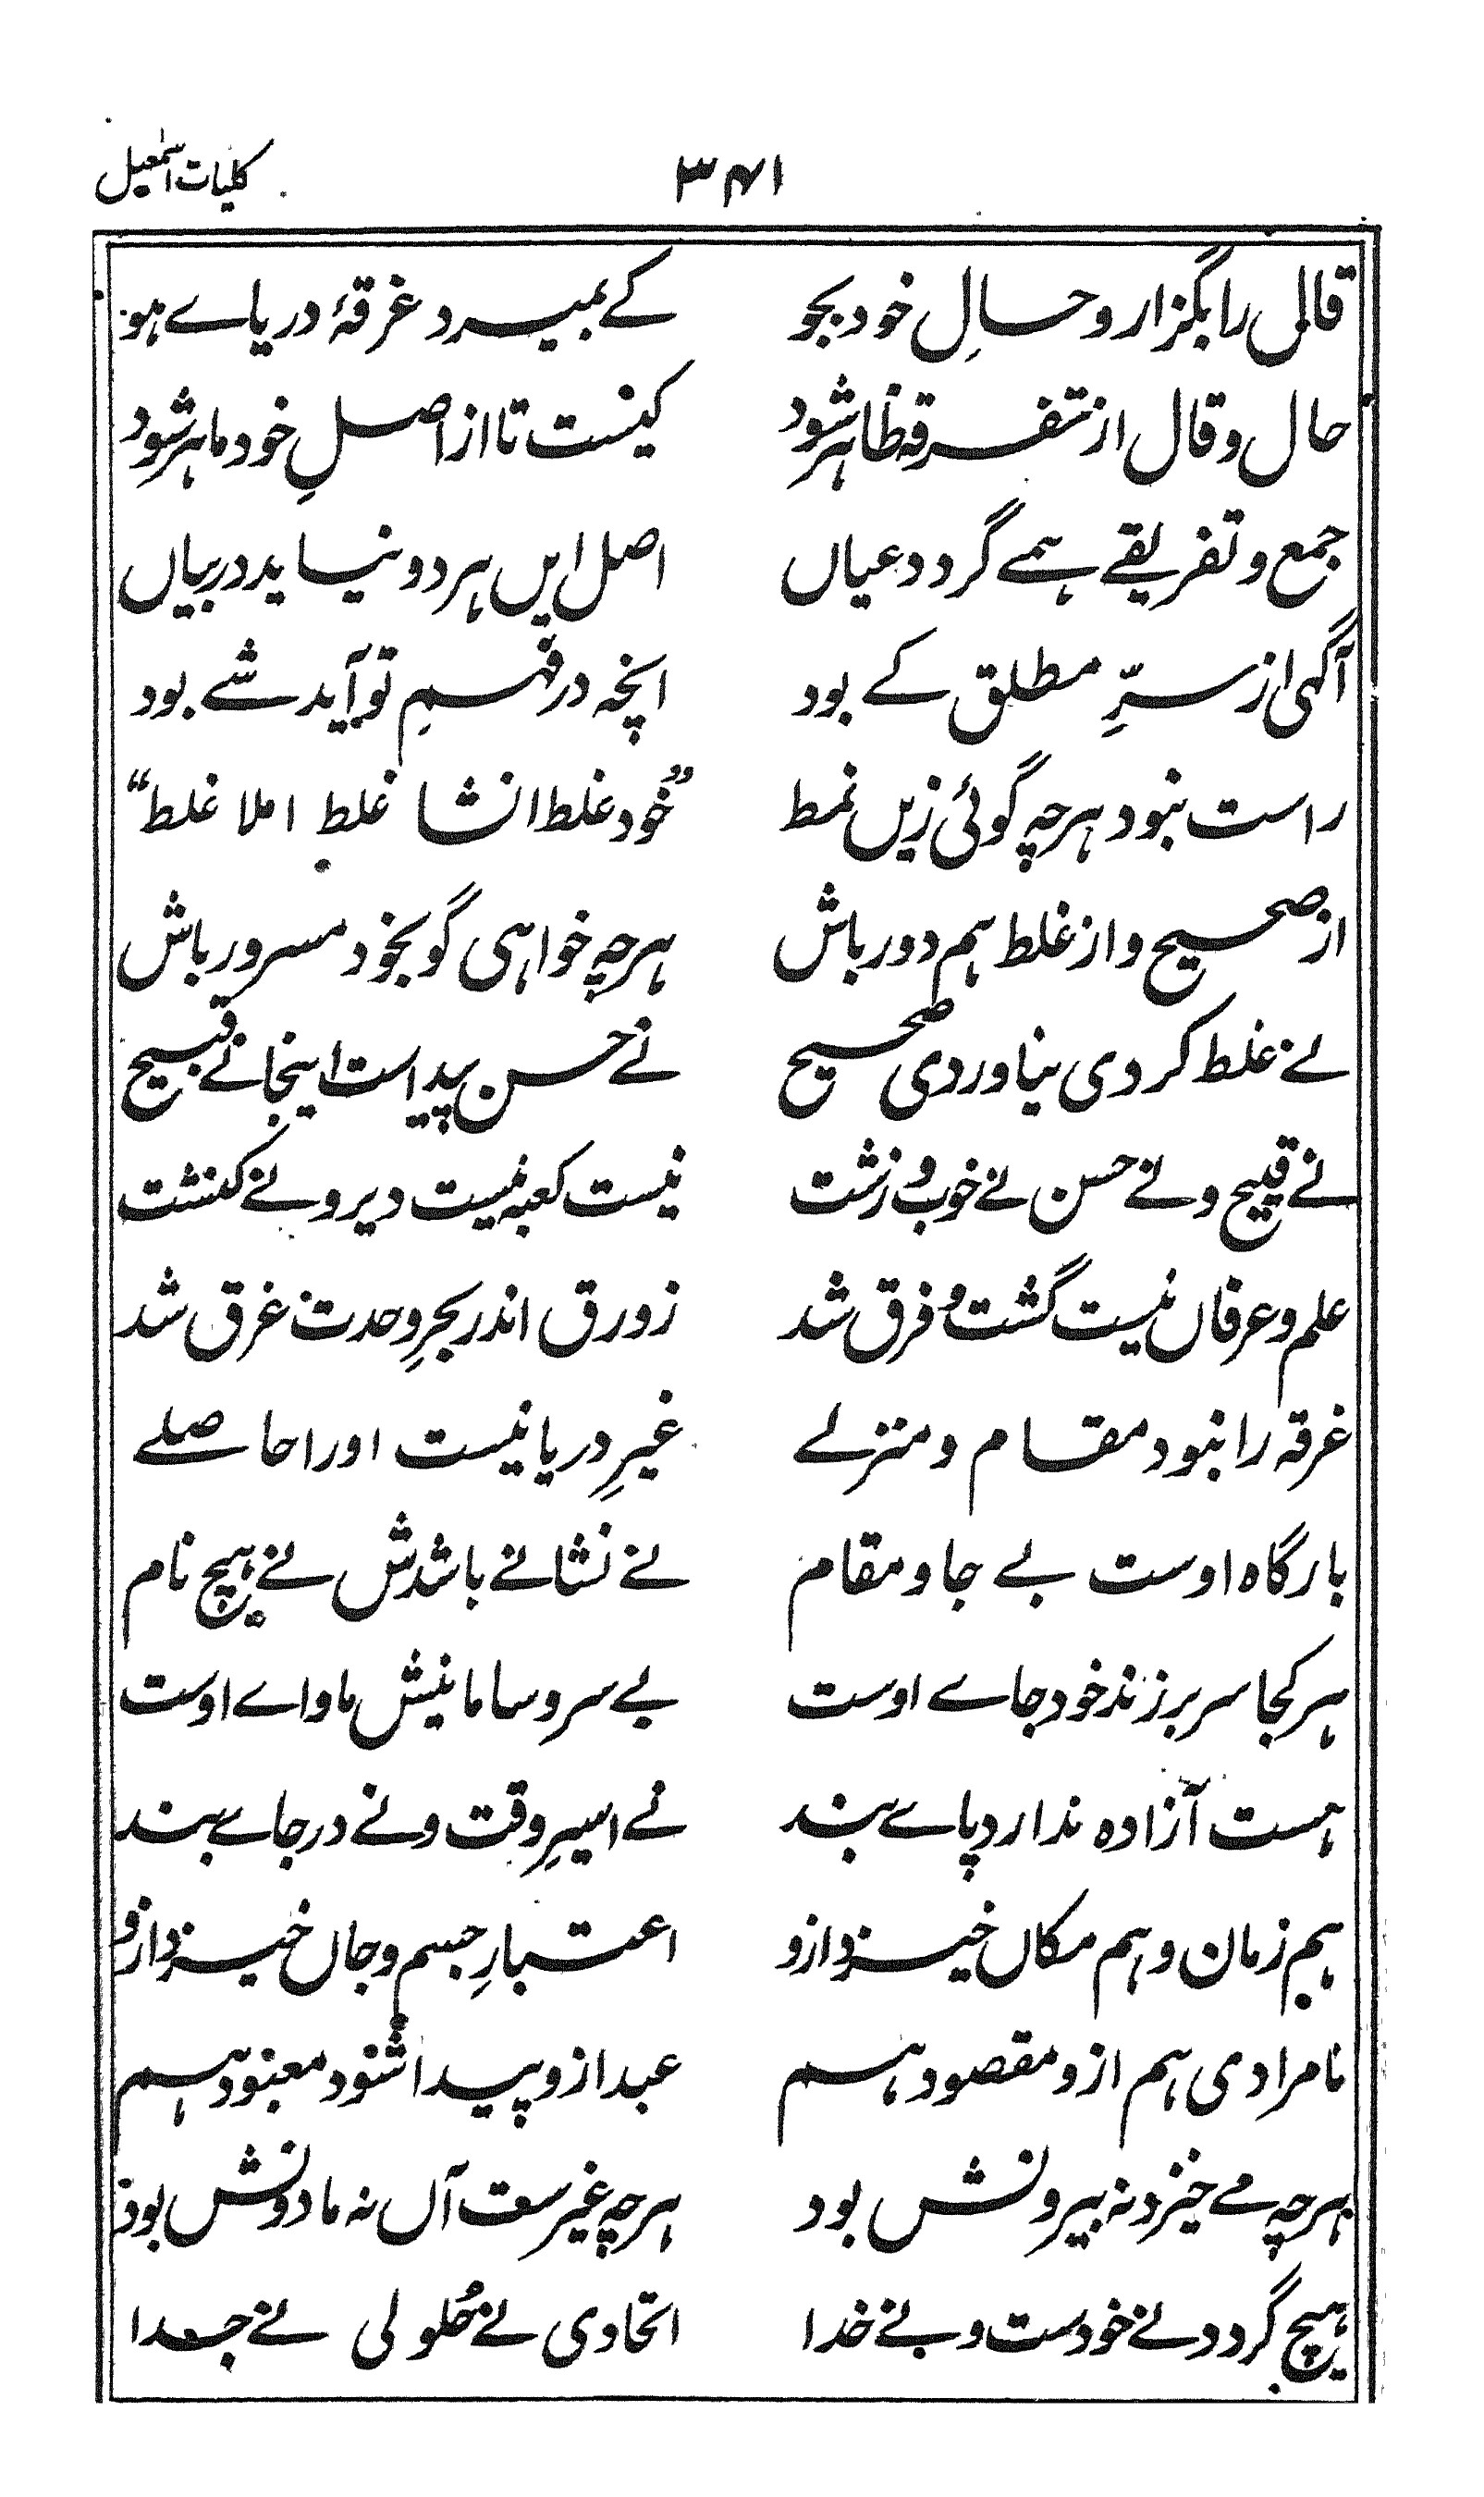 کلیات اسمٰعیل ۳۴۱
قال را بگزار و حالِ خود بجو کے بمیرد غرقۂ دریاے ہو
حال و قال از تفرقہ ظاہر شود کیست تا از اصلِ خود ماہر شود
جمع و تفریقے ہمے گردد عیاں اصل ایں ہر دو نیاید در بیاں
آگہی از سرِّ مطلق کے بود انچہ در فہمِ تو آید شے بود
راست نبود ہرچہ گوئی زیں نمط ”خُود غلط انشا غلط املا غلط“
از صحیح و از غلط ہم دور باش ہرچہ خواہی گو بخود مسرور باش
نے غلط کردی نیاوردی صحیح نے حسن پیداست اینجا نے قبیح
نے قبیح و نے حسن نے خوب و زشت نیست کعبہ نیست دیر و نے کنشت
علم و عرفاں نیست گشت و فرق شد زورق اندر بحرِ وحدت غرق شد
غرقہ را نبود مقام و منزلے غیرِ دریا نیست او را حاصلے
بارگاہ اوست بے جا و مقام نے نشانے باشدش نے ہیچ نام
ہر کجا سر بر زند خود جاے اوست بے سر و سامانیش ماواے اوست
ہست آزادہ ندارد پاے بند نے اسیرِ وقت و نے در جاے بند
ہم زمان و ہم مکاں خیزد ازو اعتبارِ جسم و جاں خیزد ازو
نامرادی ہم ازو مقصود ہم عبد ازو پیدا شود معبود ہم
ہرچہ مے خیزد نہ بیرونش بود ہرچہ غیرست آں نہ مادونش بود
ہیچ گردد نے خودست و نے خدا اتحادی نے حُلولی نے جدا